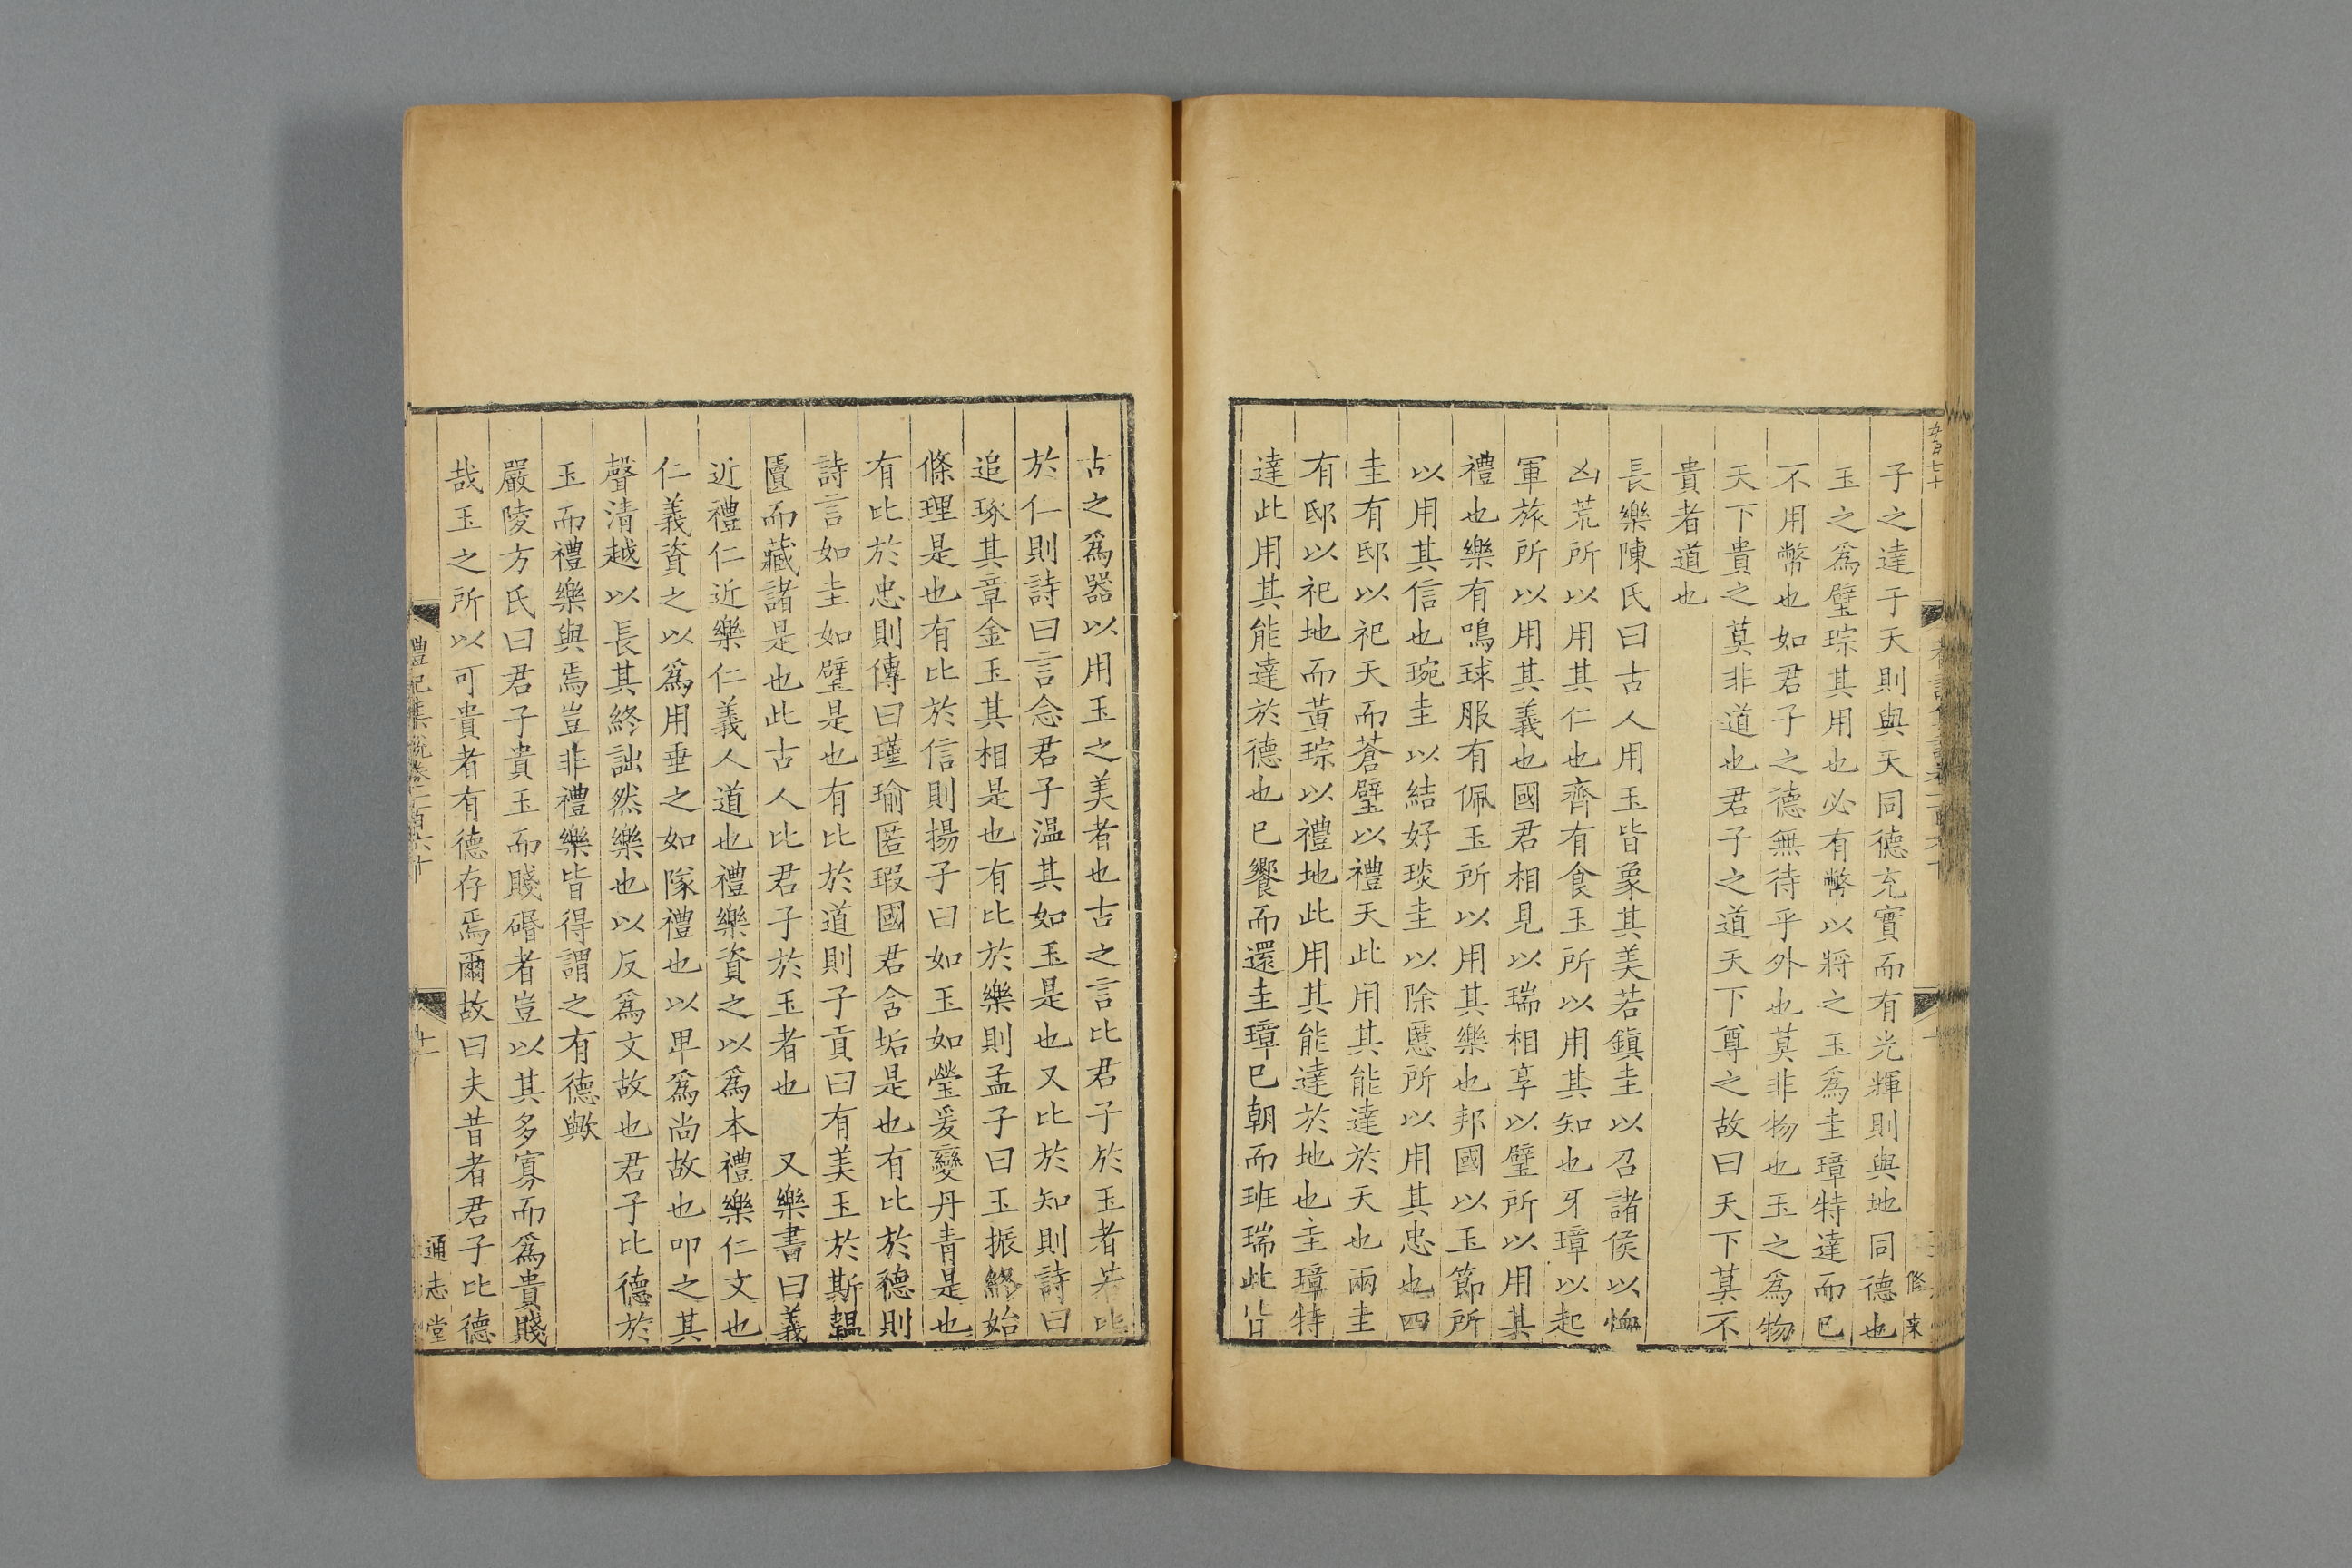 子之達于天則與天同德充實而有光輝則與地同德也
玉之爲璧琮其用也必有幣以將之玉爲圭璋特達而已
不用幣也如君子之德無待乎外也莫非物也玉之爲物
天下貴之莫非道也君子之道天下尊之故曰天下莫不
貴者道也
長樂陳氏曰古人用玉皆象其美若鎭圭以召諸侯以恤
凶荒所以用其仁也齊有食玉所以用其知也牙璋以起
軍旅所以用其義也國君相見以瑞相享以璧所以用其
禮也樂有鳴球服有佩玉所以用其樂也邦國以玉節所
以用其信也琬圭以結好琰圭以除慝所以用其忠也四
圭有邸以祀天而蒼璧以禮天此用其能達於天也兩圭
有邸以祀地而黃琮以禮地此用其能達於地也圭璋特
達此用其能達於德也已饗而還圭璋已朝而班瑞此皆
古之爲器以用玉之美者也古之言比君子於玉者若比
於仁則詩曰言念君子温其如玉是也又比於知則詩曰
追琢其章金玉其相是也有比於樂則孟子曰玉振終始
條理是也有比於信則揚子曰如玉如瑩爰變丹青是也
有比於忠則傳曰瑾瑜匿瑕國君含垢是也有比於德則
詩言如圭如璧是也有比於道則子貢曰有美玉於斯韞
匱而藏諸是也此古人比君子於玉者也 又樂書曰義
近禮仁近樂仁義人道也禮樂資之以爲本禮樂仁文也
仁義資之以爲用垂之如隊禮也以卑爲尚故也叩之其
聲清越以長其終詘然樂也以反爲文故也君子比德於
玉而禮樂與焉豈非禮樂皆得謂之有德歟
嚴陵方氏曰君子貴玉而賤碈者豈以其多寡而爲貴賤
哉玉之所以可貴者有德存焉爾故曰夫昔者君子比德
禮記集說卷一百六十
十一
通志堂